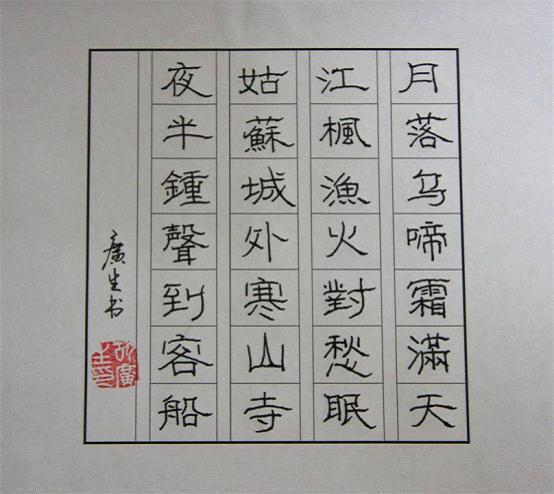 月落乌啼霜滿天
江楓漁火對愁眠
姑蘇城外寒山寺
夜半鍾聲到客船
廣生书
廣生印